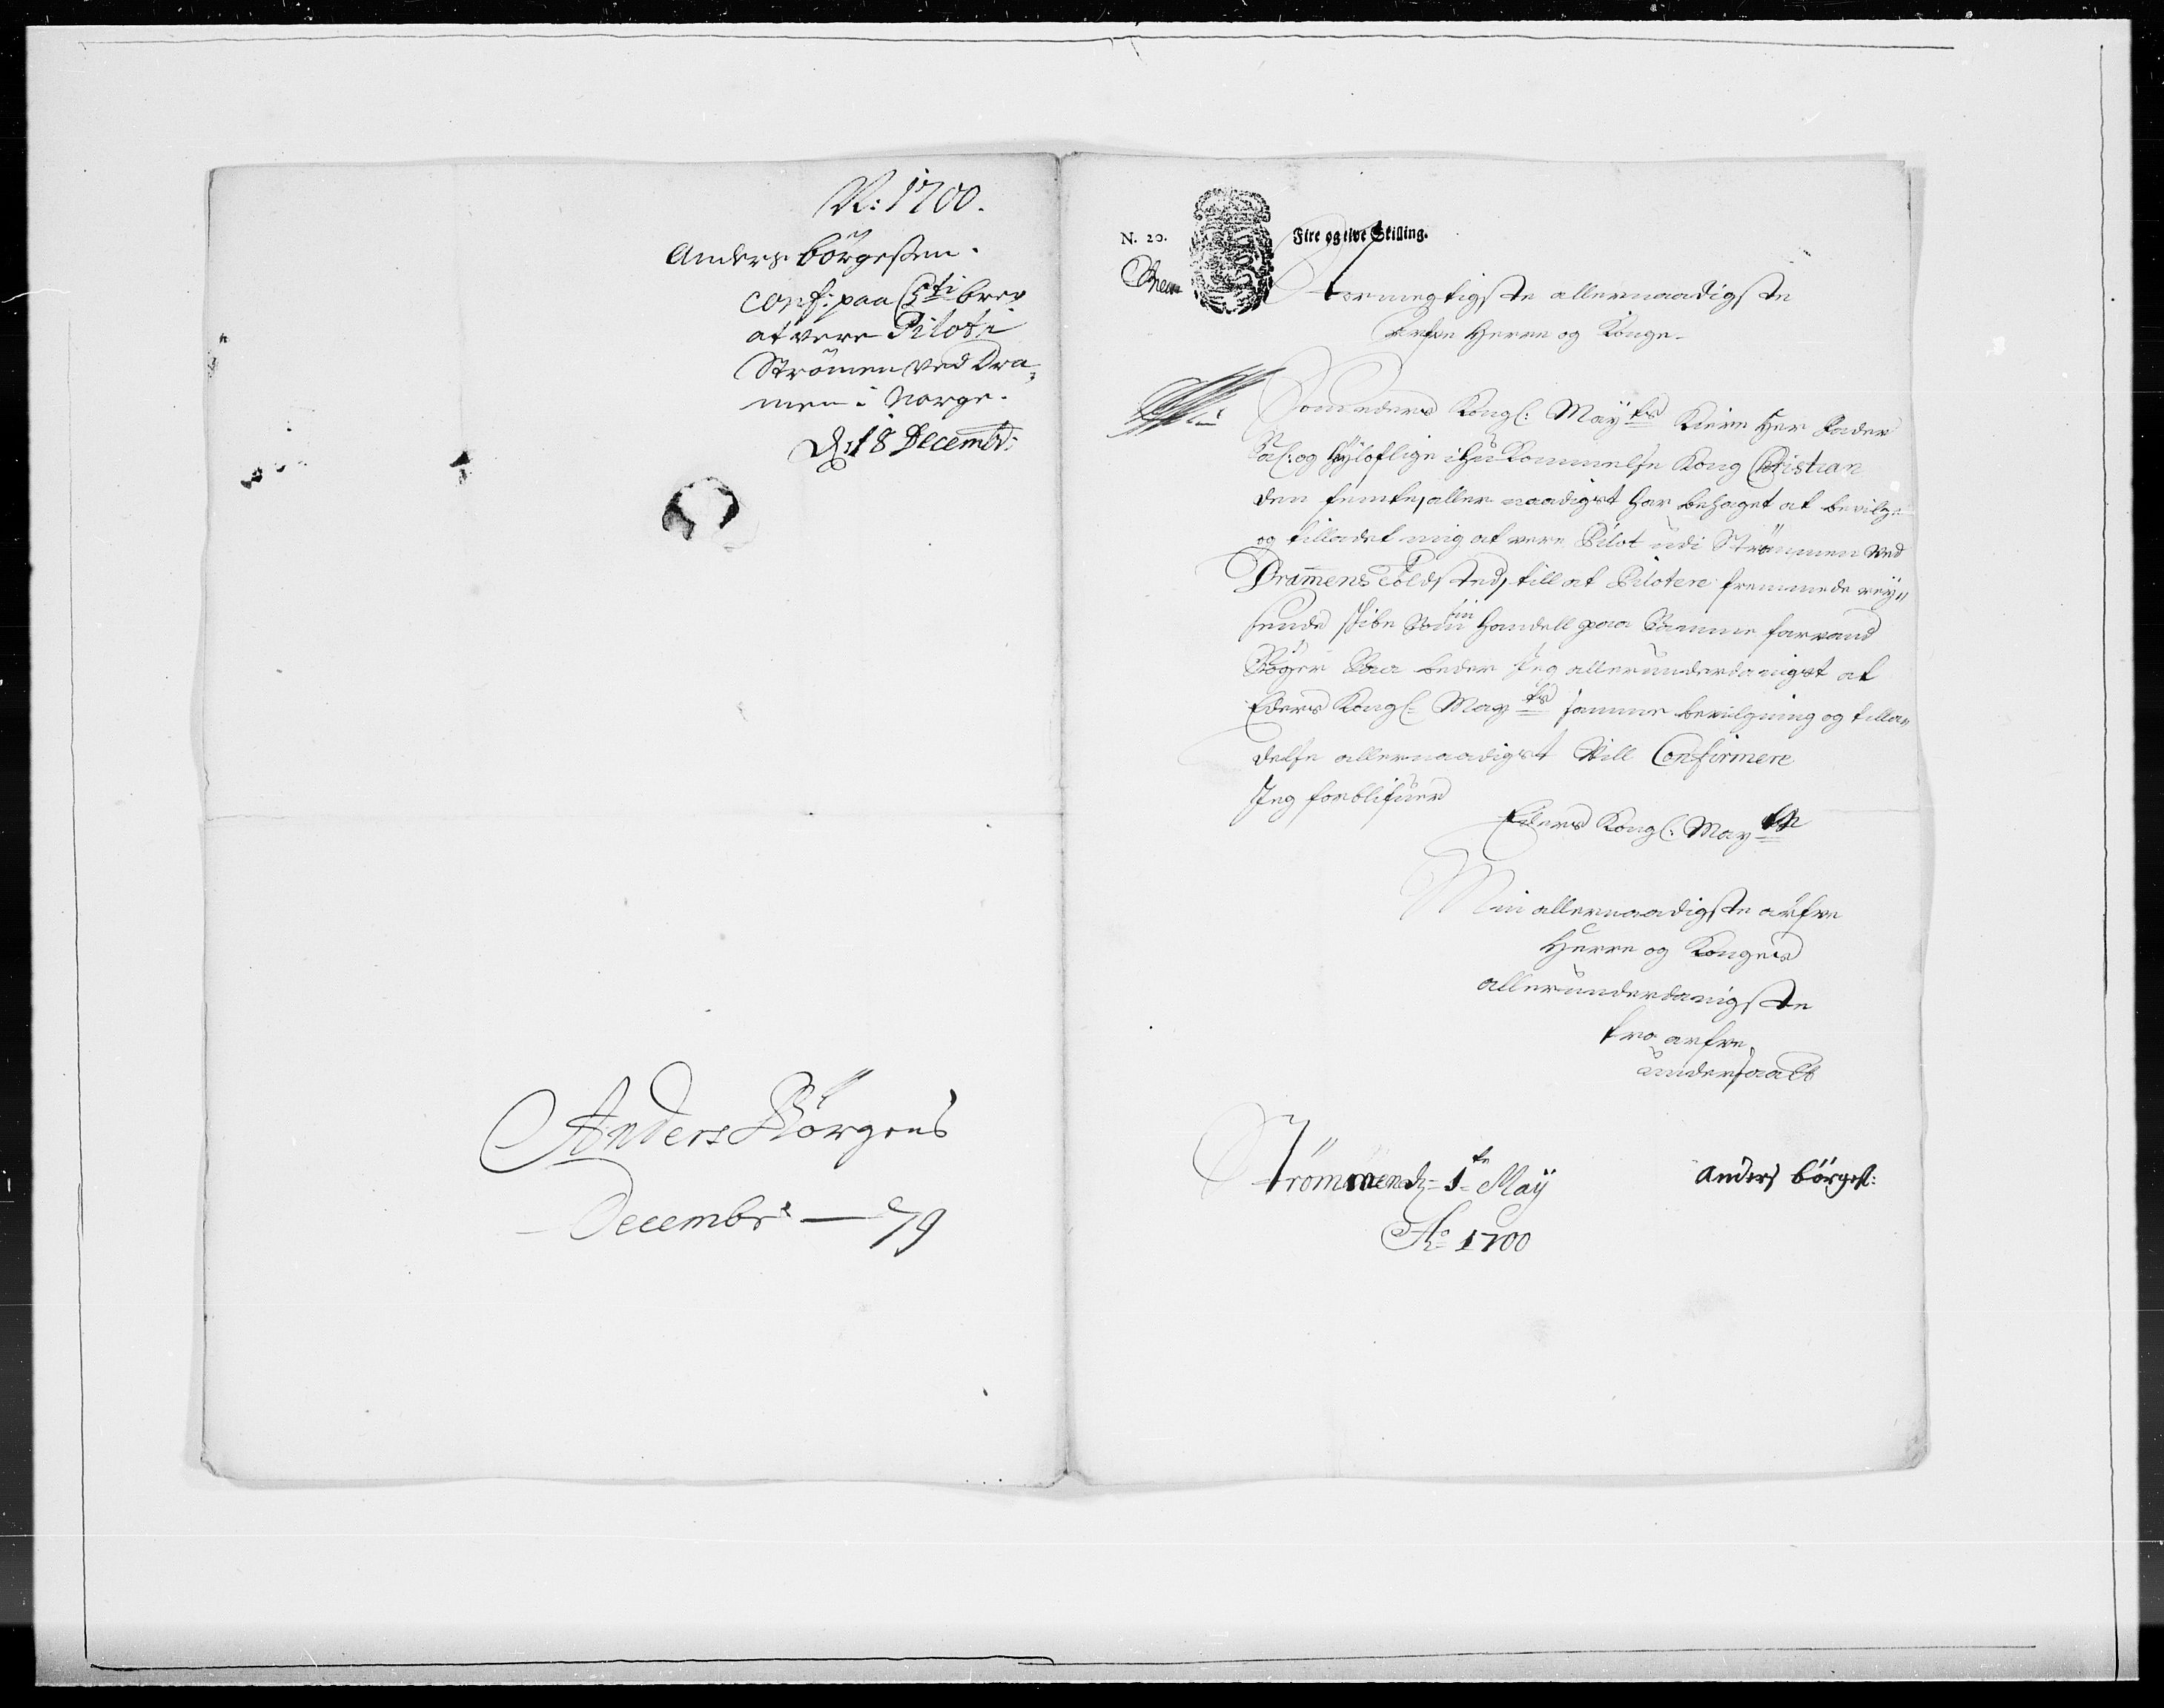 N: 1700.
Anders börgessen.
Conf: paa C 5ti brev
at vere Pilot i
Strömen ved Dra-
men i Norge.
D: 18 Decembr:
Anders Börgens
Decembr — 79
N. 20. Fire og tive Skilling.
Stormegtigste allernaadigste
Arfve Herre og Konge.
Som eders Kongl: Mayts Kiere Her Fader
Sal: og Höyloflige ihukommelse Kong Christian
den femte, aller naadigst har behaget at bevilge
og tilladet mig at vere Pilot udi Strömmen ved
Drammens Toldsted, till at Pilotere fremmede rey-
sende skibe som sin Handell paa Samme farvand
Söger Saa beder Jeg allerunderdanigst at
Eders Kongl: Mayts samme bevilgning og tilla-
delse allernaadigst Vill Confirmere
Jeg forblifuer
Eders Kongl: Mayts
Min allernaadigste arfve
Herre og Konges
allerunderdanigste
tro arfve
undersaatt
Strömmen d: 1te Maÿ
Ao 1700
Anders börges: